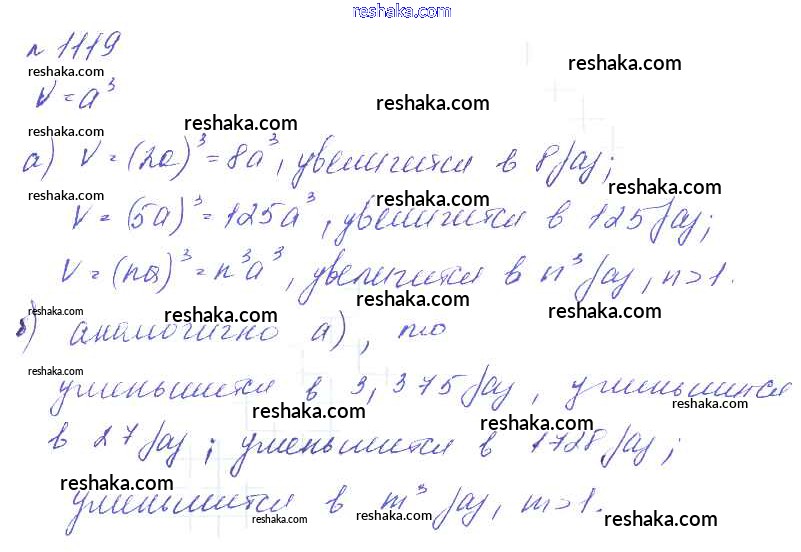 reshaka.com
№ 1119
reshaka.com reshaka.com
V = a³
reshaka.com reshaka.com
reshaka.com reshaka.com
а) V = (2a)³ = 8a³, увеличится в 8 раз;
reshaka.com reshaka.com reshaka.com
V = (5a)³ = 125a³, увеличится в 125 раз;
reshaka.com reshaka.com reshaka.com
V = (na)³ = n³a³, увеличится в n³ раз, n>1.
reshaka.com reshaka.com reshaka.com reshaka.com
б) аналогично а), то
reshaka.com
уменьшится в 3,375 раз, уменьшится
reshaka.com reshaka.com reshaka.com
в 27 раз; уменьшится в 1728 раз;
reshaka.com reshaka.com
уменьшится в m³ раз, m>1.
reshaka.com reshaka.com reshaka.com